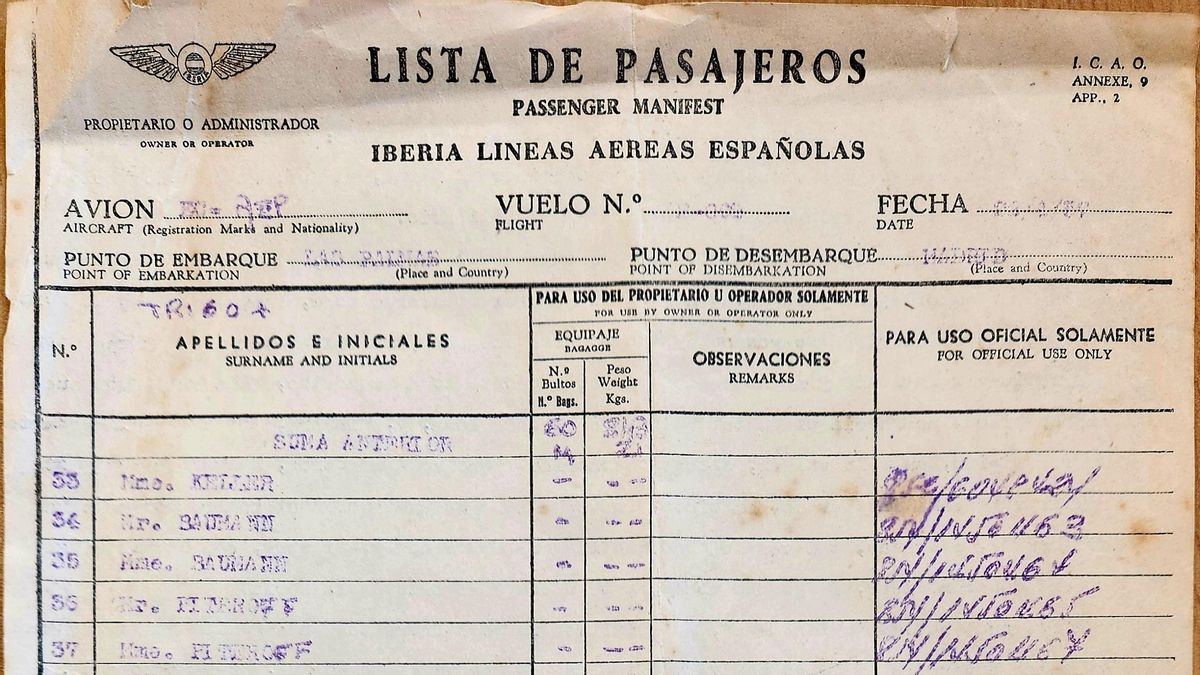 LISTA DE PASAJEROS
PASSENGER MANIFEST
IBERIA LINEAS AEREAS ESPAÑOLAS
I. C. A. O.
ANNEXE, 9
APP., 2
IBERIA
PROPIETARIO O ADMINISTRADOR
OWNER OR OPERATOR
AVION
AIRCRAFT (Registration Marks and Nationality)
VUELO N.º
FLIGHT
FECHA
DATE
PUNTO DE EMBARQUE LAS PALMAS
POINT OF EMBARKATION (Place and Country)
PUNTO DE DESEMBARQUE MADRID
POINT OF DISEMBARKATION (Place and Country)
N.º
APELLIDOS E INICIALES
SURNAME AND INITIALS
PARA USO DEL PROPIETARIO U OPERADOR SOLAMENTE
FOR USE BY OWNER OR OPERATOR ONLY
EQUIPAJE
BAGAGGE
N.º Bultos
N.º Bags.
Peso
Weight
Kgs.
OBSERVACIONES
REMARKS
PARA USO OFICIAL SOLAMENTE
FOR OFFICIAL USE ONLY
SUMA ANTERIOR
33 Mme. KELLER -- -- --
34 Mr. BAUMANN - ---
35 Mme. BAUMANN - ---
36 Mr. PITEROFF - ---
37 Mme. PITEROFF -- ---